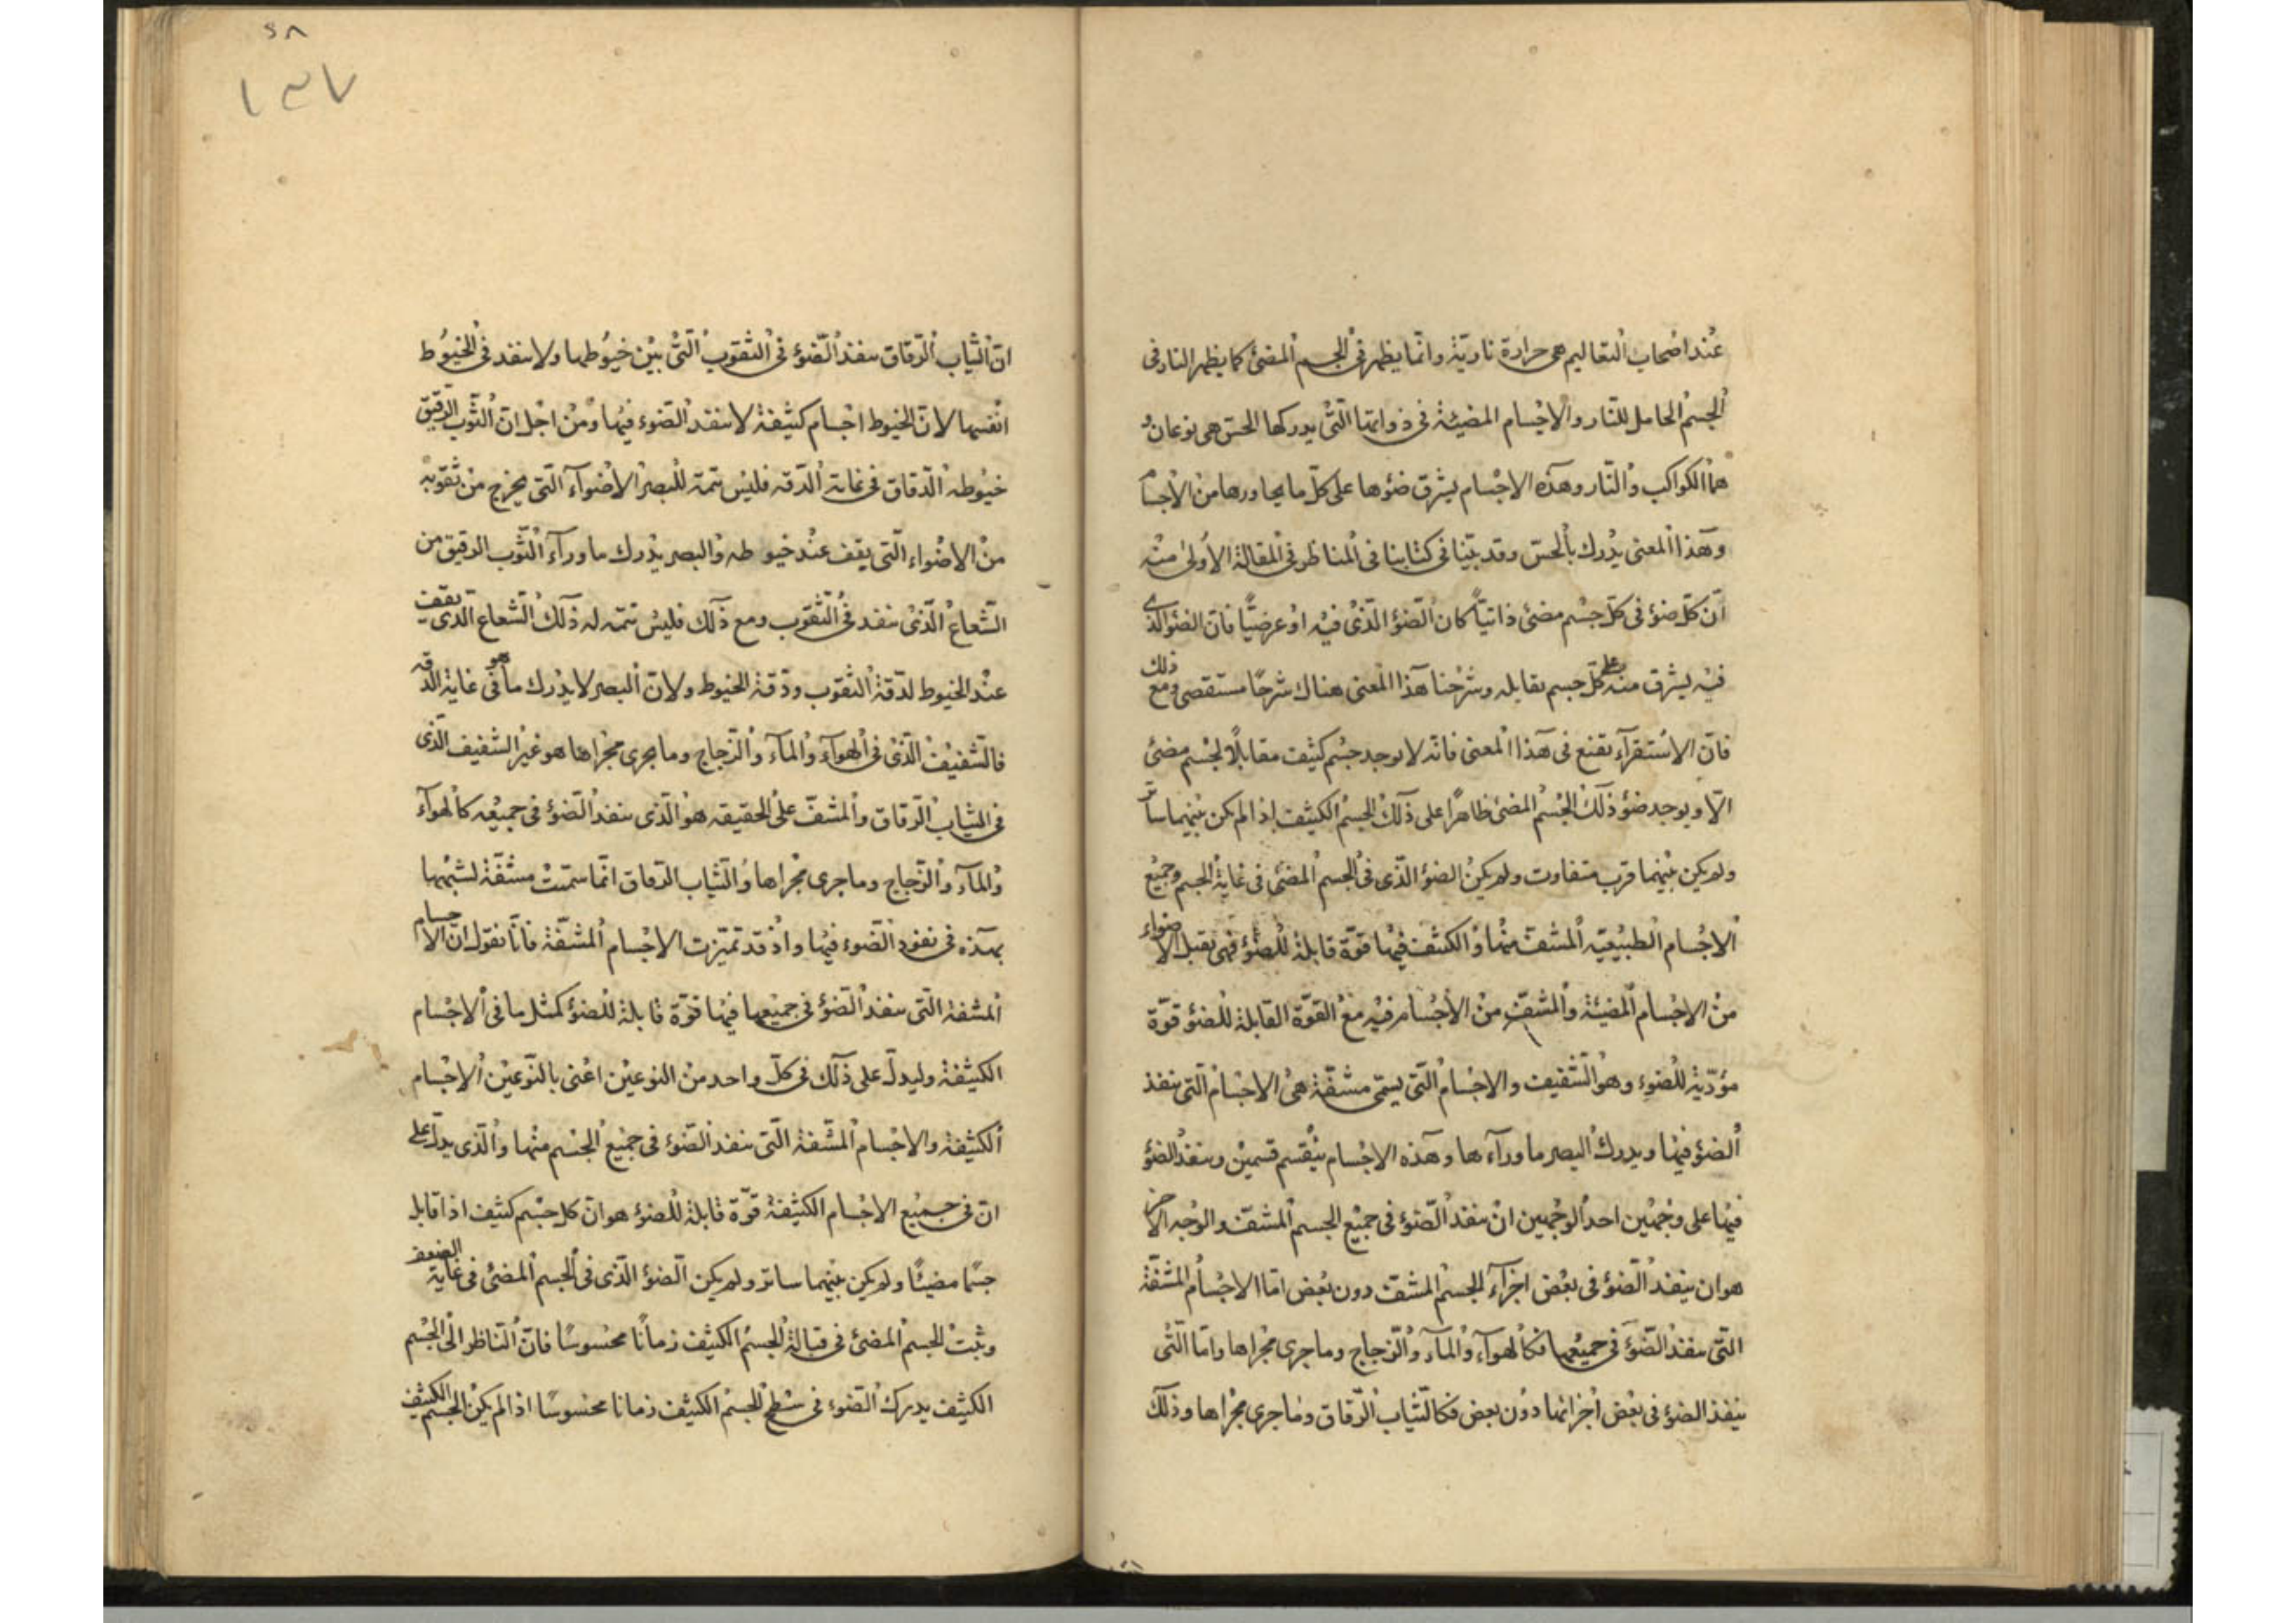 عند اصحاب التعاليم هى حرارة نارية وانما يظهر فى الجسم المضئ كما يظهر النار فى
الجسم الحامل للنار والاجسام المضيئة فى ذواتها التى يدركها الحس هى نوعان و
هما الكواكب والنار وهذه الاجسام يشرق ضوءها على كل ما يجاورها من الاجسام
وهذا المعنى يدرك بالحس وقد بينا فى كتابنا فى المناظر فى المقالة الاولى منه
ان كل ضوء فى كل جسم مضئ ذاتيا كان الضوء الذى فيه او عرضيا فان الضوء الذى
فيه يشرق منه على كل جسم يقابله وشرحنا هذا المعنى هناك شرحا مستقصى ومع ذلك
فان الاستقرآء يقنع فى هذا المعنى فانه لا يوجد جسم كثيف مقابلا لجسم مضئ
الا ويوجد ضوء ذلك الجسم المضئ ظاهرا على ذلك الجسم الكثيف اذا لم يكن بينهما ساتر
ولم يكن بينهما قرب متفاوت ولم يكن الضوء الذى فى الجسم المضئ فى غاية الجسم وجميع
الاجسام الطبيعيه المشفة منها والكثيفة فيها قوة قابلة للضوء فهى تقبل الاضواء
من الاجسام المضيئة والمشف من الاجسام فيه مع القوة القابلة للضوء قوة
مؤدية للضوء وهو الشفيف والاجسام التى يسمى مشفة هى الاجسام التى ينفذ
الضوء فيها ويدرك البصر ما ورآءها وهذه الاجسام ينقسم قسمين وينفذ الضوء
فيها على وجهين احد الوجهين ان ينفذ الضوء فى جميع الجسم المشف والوجه الاخر
هو ان ينفذ الضوء فى بعض اجزآء الجسم المشف دون بعض اما الاجسام المشفة
التى ينفذ الضوء فى جميعها فكالهوآء والمآء والزجاج وما جرى مجراها واما التى
ينفذ الضوء فى بعض اجزائها دون بعض فكالثياب الرقاق وما جرى مجراها وذلك
٢٨
١٣٧
ان الثياب الرقاق ينفذ الضوء فى الثقوب التى بين خيوطها ولا ينفذ فى الخيوط
انفسها لان الخيوط اجسام كثيفة لا ينفذ الضوء فيها ومن اجل ان الثوب الرقيق
خيوطه الدقاق فى غاية الدقه فليس يتميز للبصر الاضوآء التى يخرج من ثقوبه
من الاضواء التى يقف عند خيوطه والبصر يدرك ما ورآء الثوب الرقيق من
الشعاع الذى ينفذ فى الثقوب ومع ذلك فليس يتميز له ذلك الشعاع الذى يقف
عند الخيوط لدقة الثقوب ودقة الخيوط ولان البصر لا يدرك ما هو فى غاية الدقه
فالشفيف الذى فى الهوآء والمآء والزجاج وما يجرى مجراها هو غير الشفيف الذى
فى الثياب الرقاق والمشف على الحقيقه هو الذى ينفذ الضوء فى جميعه كالهوآء
والمآء والزجاج وما جرى مجراها والثياب الرقاق انما سميت مشفة لشبهها
بهذه فى نفوذ الضوء فيها واذ قد تميزت الاجسام المشفة فانا نقول ان الاجسام
المشفة التى ينفذ الضوء فى جميعها فيها قوة قابلة للضوء كمثل ما فى الاجسام
الكثيفة وليدل على ذلك فى كل واحد من النوعين اعنى بالنوعين الاجسام
الكثيفة والاجسام المشفة التى ينفذ الضوء فى جميع الجسم منها والذى يدل على
ان فى جميع الاجسام الكثيفة قوة قابلة للضوء هو ان كل جسم كثيف اذا قابل
جسما مضيئا ولم يكن بينهما ساتر ولم يكن الضوء الذى فى الجسم المضئ فى غاية الضعف
وثبت الجسم المضئ فى قبالة الجسم الكثيف زمانا محسوسا فان الناظر الى الجسم
الكثيف يدرك الضوء فى سطح الجسم الكثيف زمانا محسوسا اذا لم يكن الجسم الكثيف